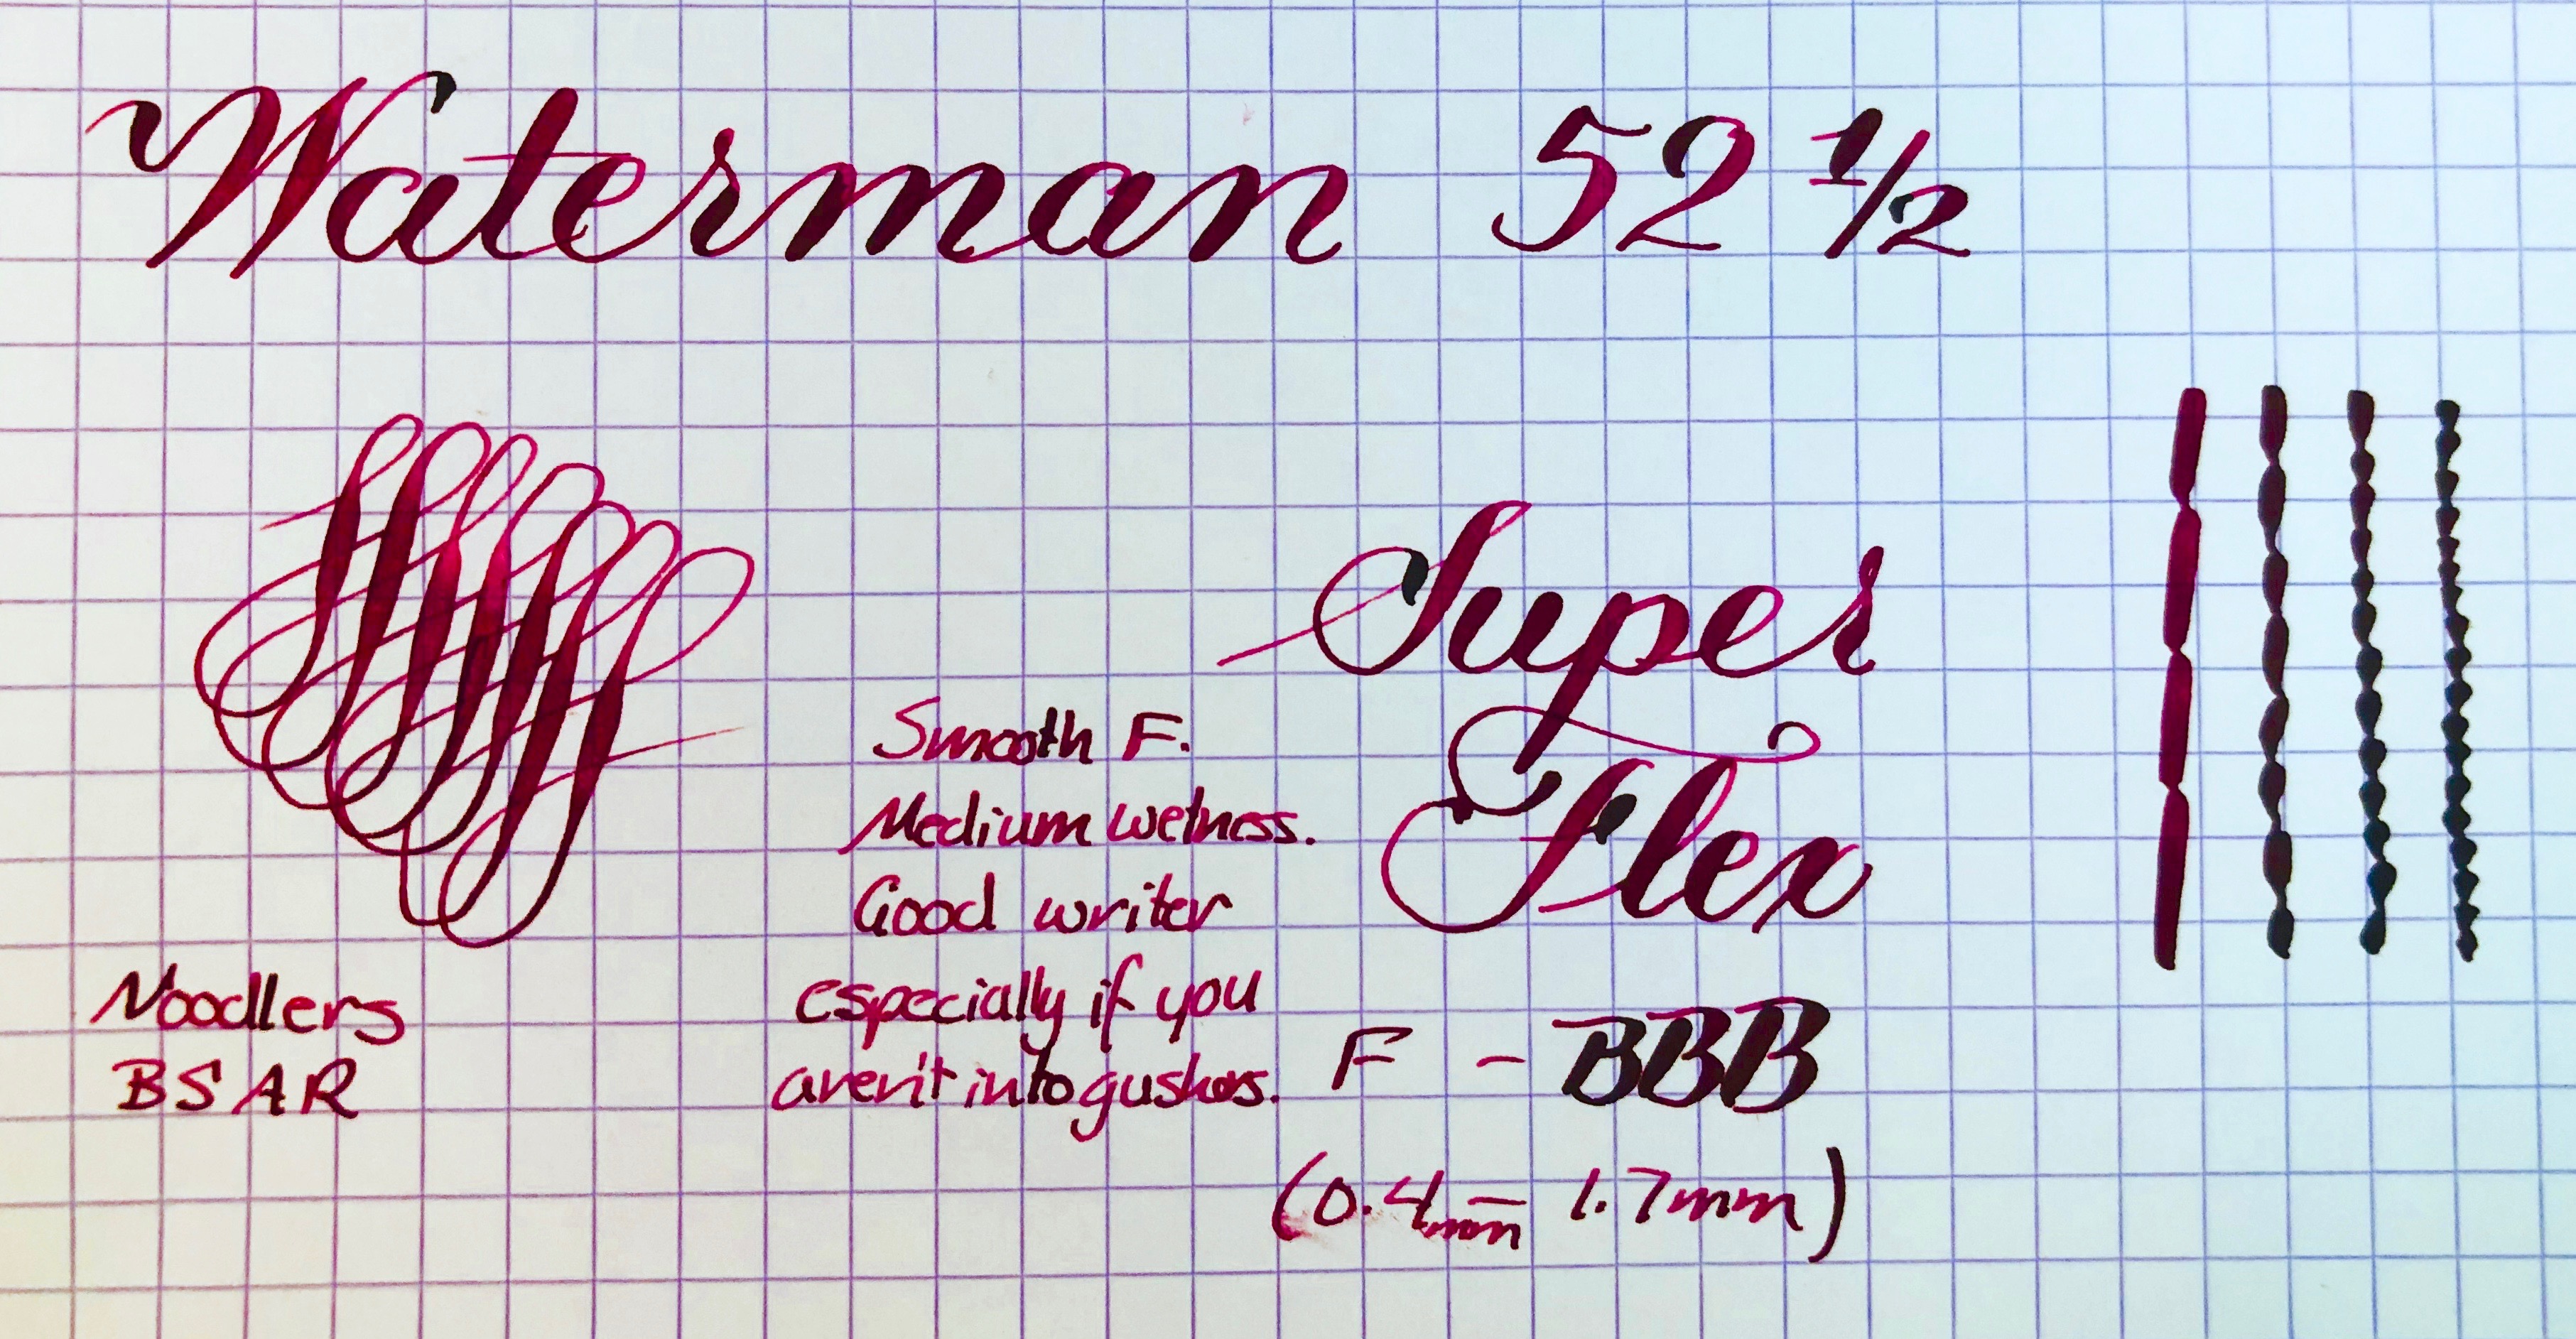 Waterman 52 1/2
Super
Flex
Smooth F.
Medium wetness.
Good writer
especially if you
aren't into gushers.
F - BBB
(0.4mm - 1.7mm)
Noodlers
BSAR